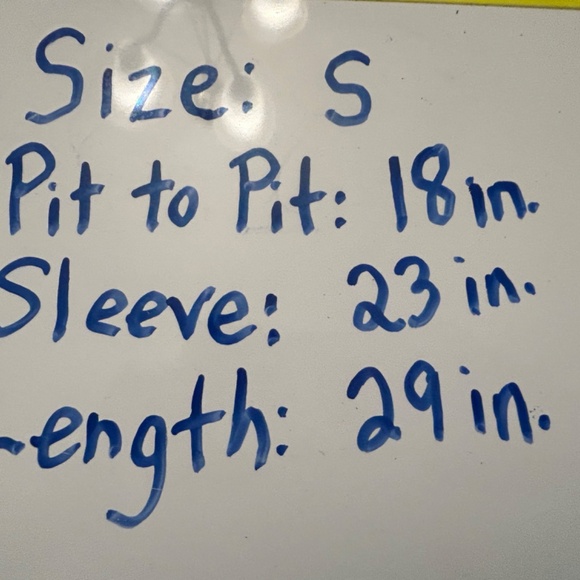 Size: S
Pit to Pit: 18 in.
Sleeve: 23 in.
Length: 29 in.